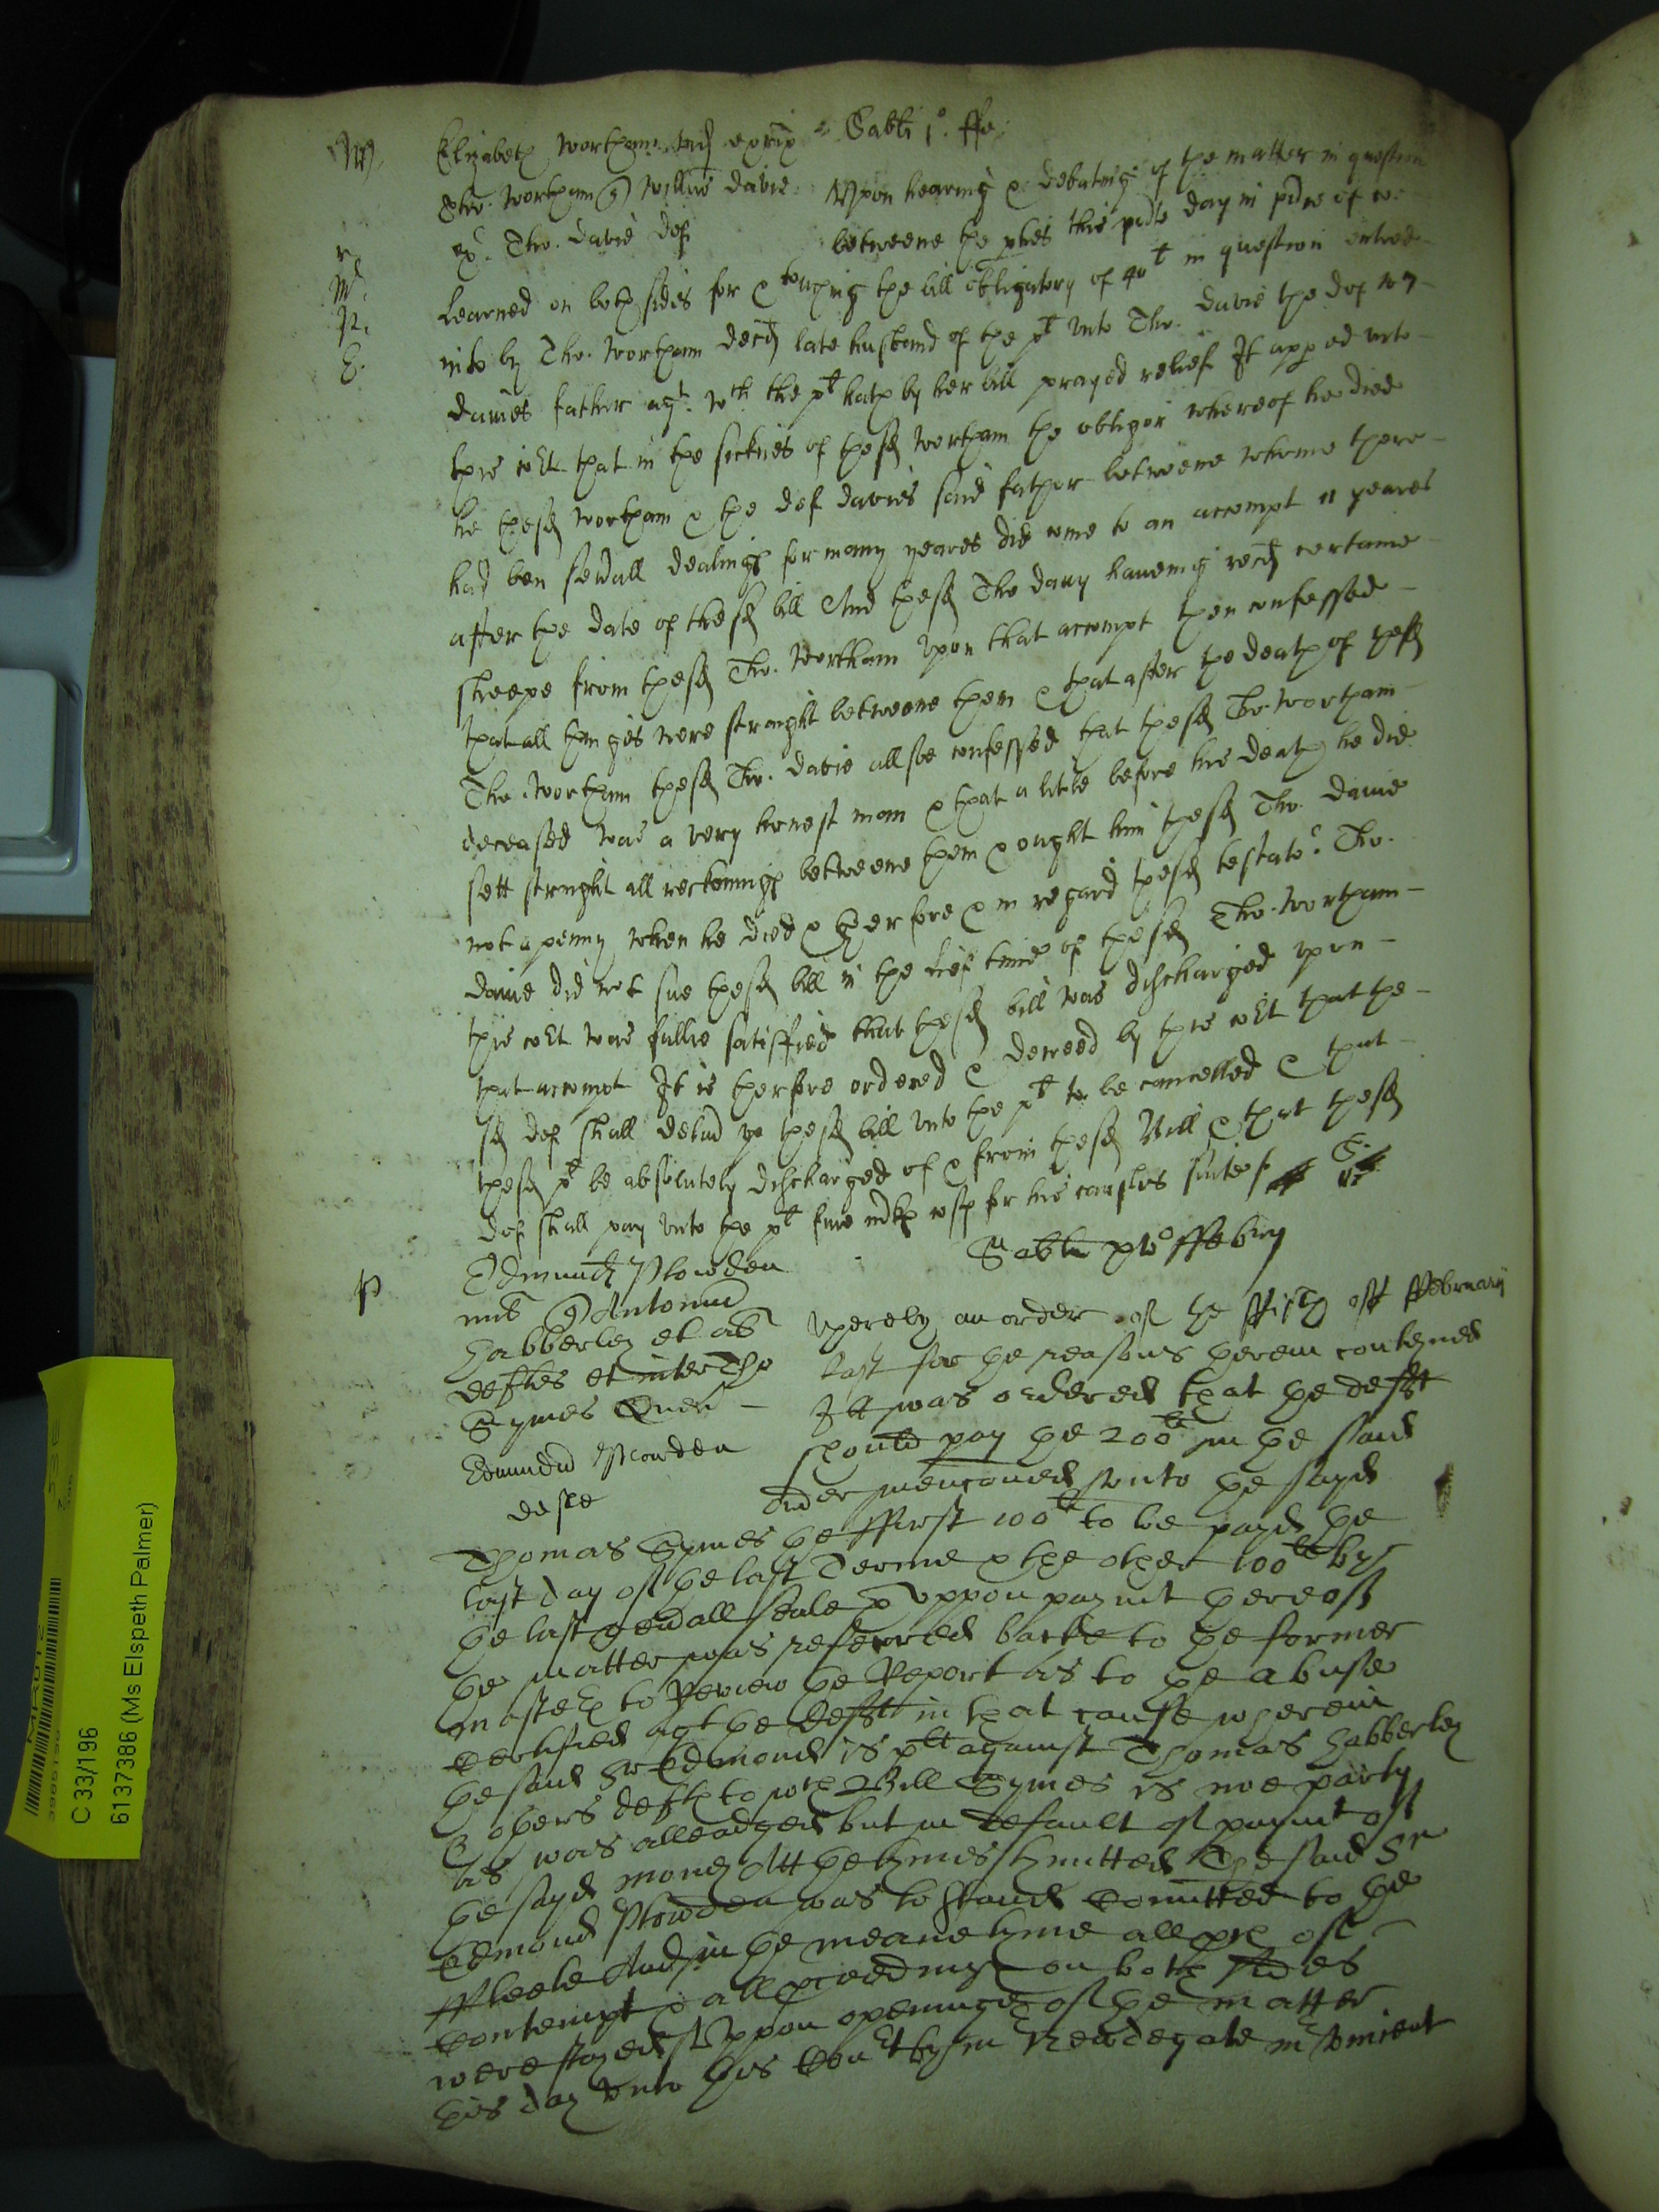 W. Elizabeth Wortham wid exrix Sabti 1o ffe:
Tho. Wortham q Willm Davie Upon hearing & debateing of the matter in question
ex. Tho. Davie def betweene the pties this pnte day in pnce of co:
r.
learned on both sides for & touching the bill obligatory of 40l in question entred
W.
into by Tho. Wortham decd late husband of the plt unto Tho. Davie the def W
P.
Davies father agt wch the plt hath by her bill prayed relief It appeed unto
E.
this cort that in the sicknes of the sd Wortham the obligor whereof he died
he the sd Wortham & the def Davies said father betweene whome there
had ben sevall dealings for many yeares did come to an accompt 11 yeares
after the date of the sd bill And the sd Tho Davy haveing recd certaine
sheepe from the sd Tho. Wortham upon that accompt then confessed
that all thinges were straight betweene them & that after the death of the sd
Tho. Wortham the sd Tho. Davie allsoe confessed that the sd Tho. Wortham
deceased was a very honest man & that a little before his death he did
sett straight all reckonings betweene them & ought him the sd Tho. Davie
not a penny when he died & therfore & in regard the sd testator Tho.
Davie did not sue the sd bill in the lief time of the sd Tho. Wortham
this cort was fullie satisffied that the sd bill was discharged upon
that accompt It is therfore ordered & decreed by this cort that the
sd def shall delivr up the sd bill unto the plt to be cancelled & that
the sd plt be absolutely discharged of & from the sd Bill & that the sd
def shall pay unto the plt five mks costs for his causles suites
P Edmund Plowden Sabti pro ffebrij
mil q Antoniu
Habberley et al Whereby an order of the ffifth off ffebruary
deftes et inter Tho last for the reasons therein conteyned
Symes Quer Itt was ordered that the defft
Edmundu Plowden should pay the 200li in the said
defte order mencioned unto the sayd
Thomas Symes the ffirst 100li to be payd the
last day of the last Terme & the other 100li by
the last genall seale & uppon paymt thereof
the matter was referred backe to the former
master to Review the Report as to the abuse
certified agt the defft in that cause wherein
the said Sr Edmond is plt against Thomas Habberley
& others defts to wch Bill Symes is noe party
as was alleadged but in default of paymt of
the sayd money att the tymes lymitted the said Sr
Edmond Plowden was to stand comitted to the
ffleete And in the meane tyme all pces of
contempt & all pceedings on both sides
were stayed Uppon openinge of the matter
this day unto this Court by mr Newdegate mr
C 33/196
6137386 (Ms Elspeth Palmer)